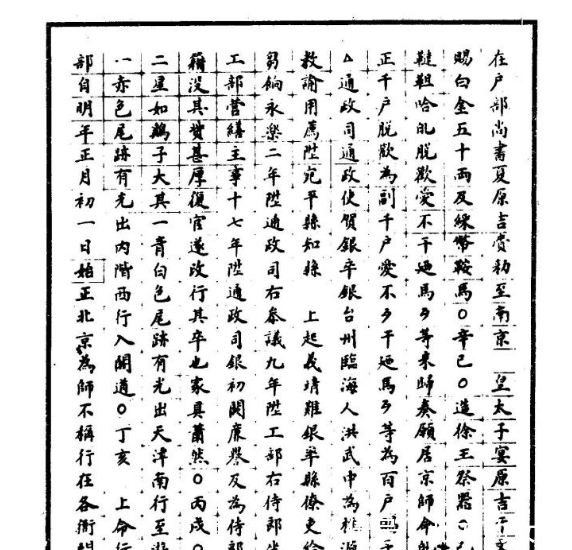 在户部尚書夏原吉賫勑至南京 皇太子宴原吉于
賜白金五十兩及綵幣鞍馬○辛巳○造徐王祭器○
韃靼哈乩脱歡愛不干廸馬歹等來歸奏願居京師命
正千户脱歡為副千户愛不歹干廸馬歹等為百户
△通政司通政使賀銀卒銀台州臨海人洪武中為桃源
教諭用薦陞宛平縣知縣 上起義靖難銀率縣僚吏給
芻餉永樂二年陞通政司右叅議九年陞工部右侍郎坐
工部營繕主事十七年陞通政司銀初閑廉譽及為侍郎
籍没其貲甚厚復官遂改行其卒也家具蕭然○丙戌○
二星如鷄子大其一青白色尾跡有光出天津南行至遊
一赤色尾跡有光出内階西行入閣道○丁亥 上命行
部自明年正月初一日始正北京為師不稱行在各衙門